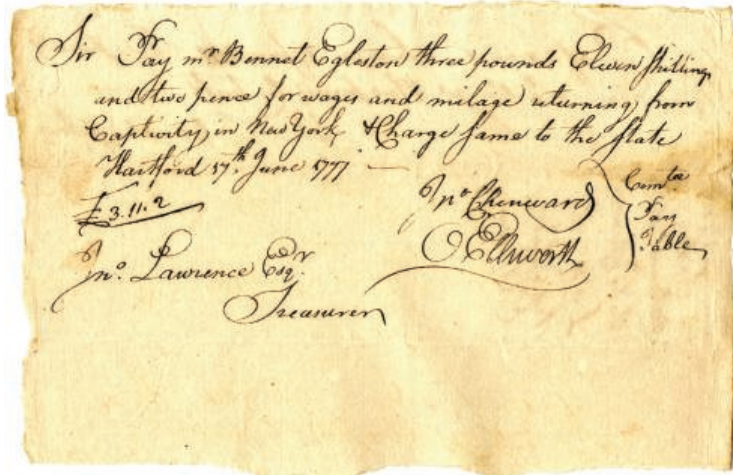 Sir Pay mr. Bennet Egleston three pounds Eleven shillings
and two pence for wages and milage returning from
Captivity in New York, & Charge same to the State
Hartford 17th. June 1777 —
£3.11.2
Jno Chenward
O Ellsworth
Comtee
Pay
Table
Jno. Lawrence Esqr.
Treasurer